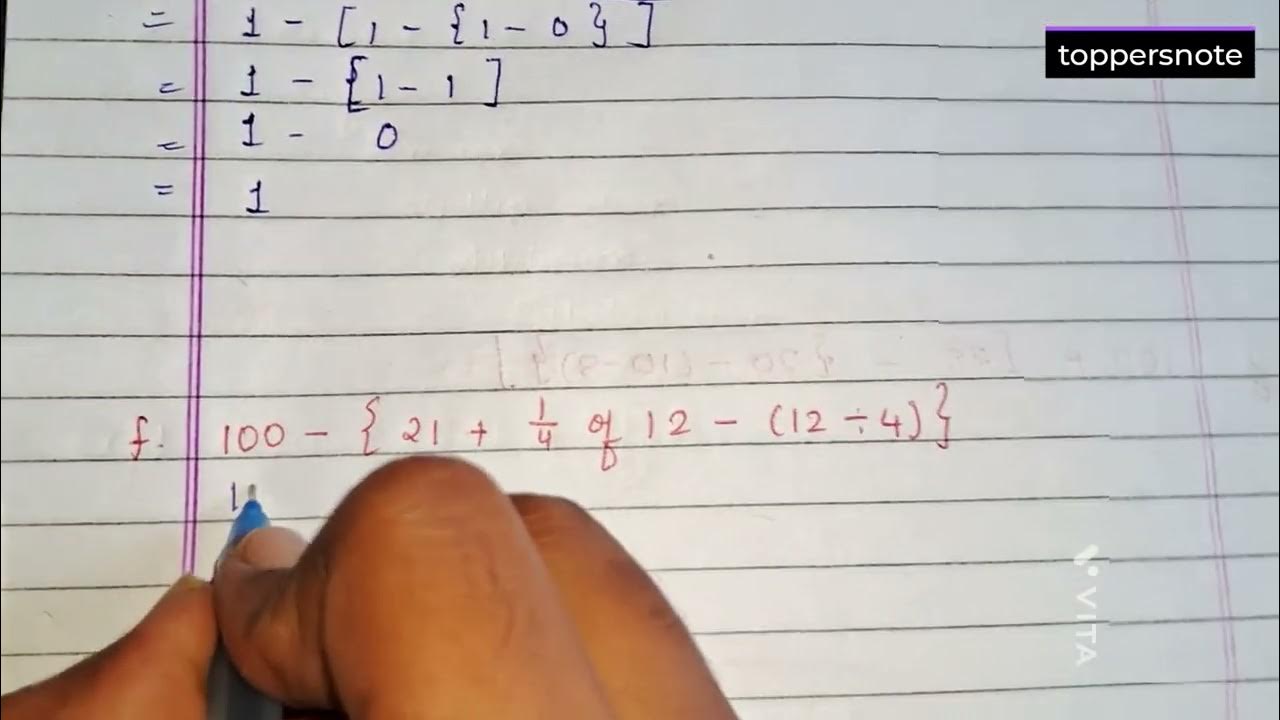 = 1 - [1 - {1 - 0}]
toppersnote
= 1 - [1 - 1]
= 1 - 0
= 1
f. 100 - { 21 + 1/4 of 12 - (12 ÷ 4)}
1
VITA